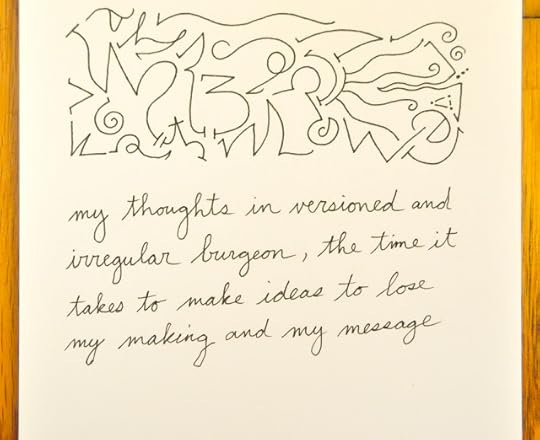 my thoughts in versioned and
irregular burgeon, the time it
takes to make ideas to lose
my making and my message